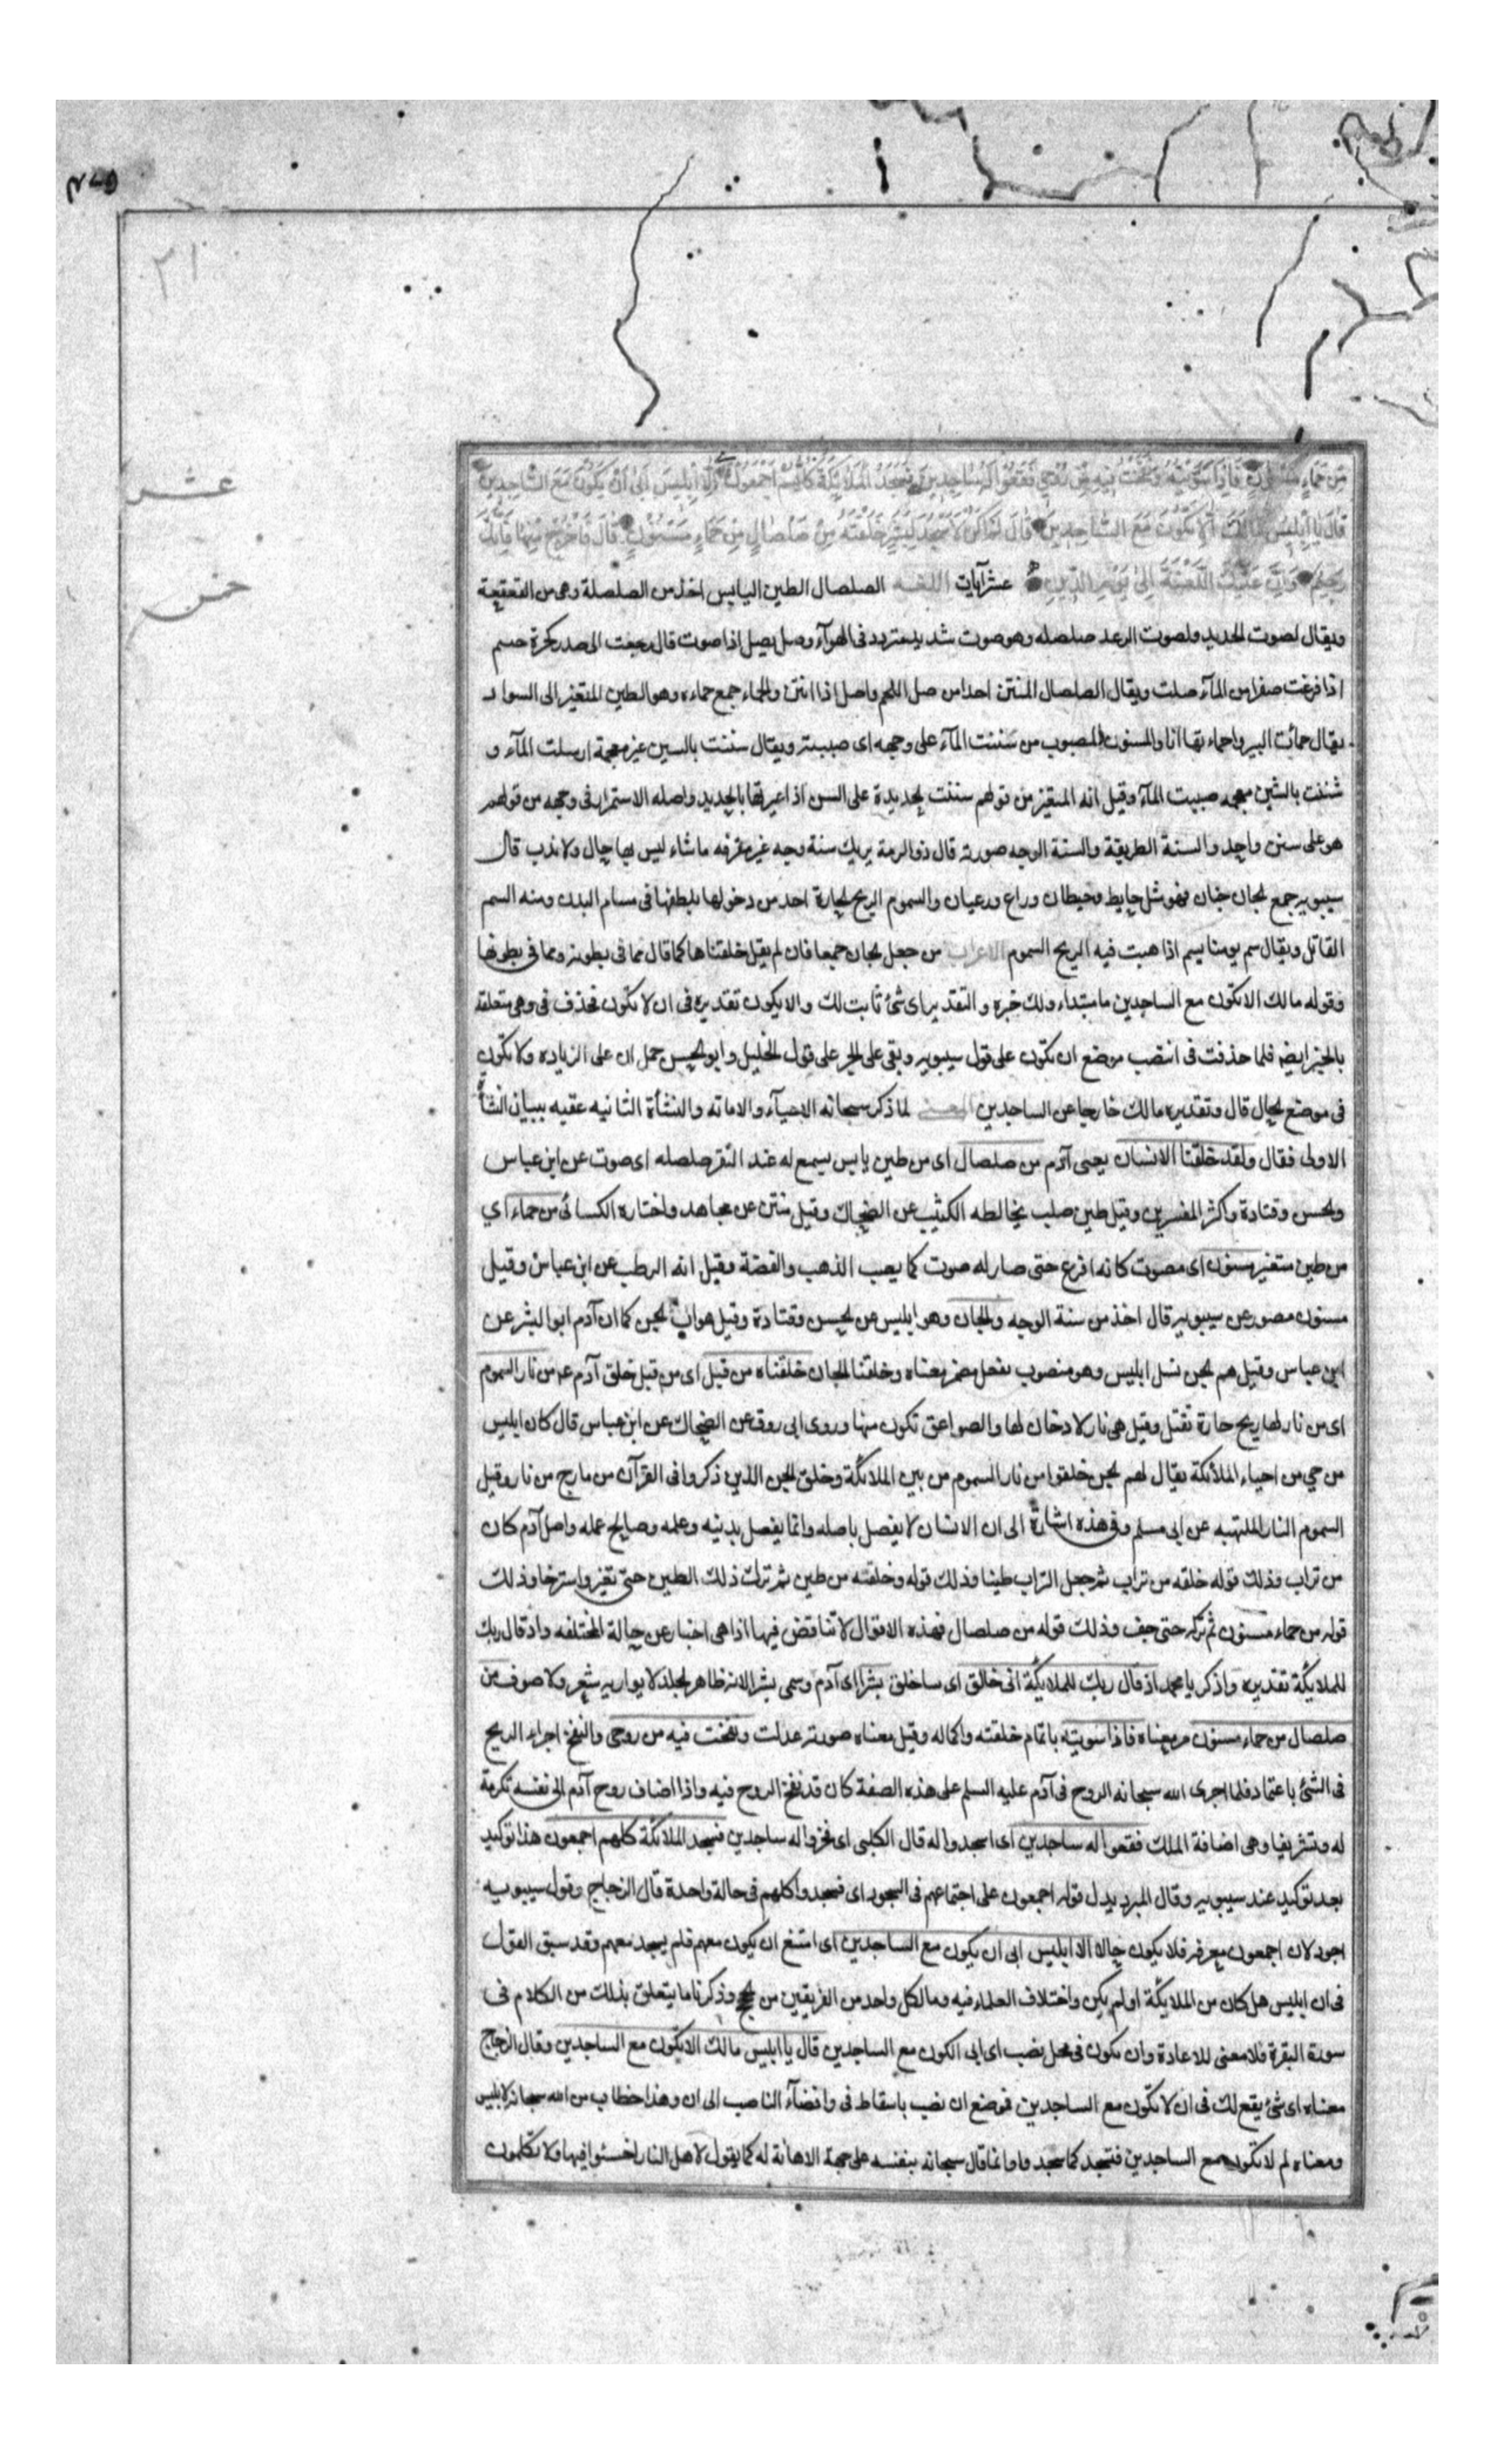 ٢١
عشر
خمس
مِن حَمَاءٍ مَسْنُونٍ فَاِذَا سَوَّيْتُهُ وَنَفَخْتُ فِيهِ مِن رُوحِي فَقَعُوا لَهُ سَاجِدِينَ فَسَجَدَ المَلَائِكَةُ كُلُّهُمْ اَجْمَعُونَ اِلَّا اِبْلِيسَ اَبَى اَنْ يَكُونَ مَعَ السَّاجِدِينَ
قَالَ يَا اِبْلِيسُ مَا لَكَ اَلَّا تَكُونَ مَعَ السَّاجِدِينَ قَالَ لَمْ اَكُنْ لِاَسْجُدَ لِبَشَرٍ خَلَقْتَهُ مِنْ صَلْصَالٍ مِنْ حَمَاءٍ مَسْنُونٍ قَالَ فَاخْرُجْ مِنْهَا فَاِنَّكَ
رَجِيمٌ وَاِنَّ عَلَيْكَ اللَّعْنَةَ اِلَى يَوْمِ الدِّينِ عشر آيات اللغـة الصلصال الطين اليابس اخذ من الصلصلة وهى من القعقعة
ويقال لصوت الحديد ولصوت الرعد صلصله وهو صوت شديد متردد فى الهوآء وصل يصل اذا صوت قال رجعت الى صدر كجرة حنتم
اذا فرغت صفرا من المآء صلت ويقال الصلصال المنتن اخذ من صل اللحم واصل اذا انتن والحماء جمع حماءه وهو الطين المتغير الى السواد
يقال حمأت البير واحماءتها انا والمسنون المصبوب من سننت المآء على وجهه اى صببته ويقال سننت بالسين غير معجمة ارسلت المآء و
شننت بالشين معجمه صببت المآء وقيل انه المتغير من قولهم سننت الحديدة على المسن اذا غيرتها بالحديد واصله الاستمرار فى وجهه من قولهم
هو على سنن واحد والسنة الطريقة والسنة الوجه صورته قال ذو الرمة يريك سنة وجه غير مقرفه ملساء ليس بها خال ولا ندب قال
سيبويه جمع الجان جنان فهو مثل حايط وحيطان وراع ورعيان والسموم الريح الحارة اخذ من دخولها بلطفها فى مسام البدن ومنه السم
القاتل ويقال سم يومنا يسم اذا هبت فيه الريح السموم الاعراب من جعل الجان جمعا فان لم يقل خلقناها كما قال مما فى بطونه ومما فى بطونها
وقوله مالك الا تكون مع الساجدين ما مبتداء ولك خبره والتقدير اى شئ ثابت لك والا يكون تقديره فى ان لا تكون فحذف فى وهى متعلقه
بالخبر ايضا فلما حذفت فى انتصب موضع ان تكون على قول سيبويه وبقى على الجر على قول الخليل وابو الحسن حمل ان على الزياده ولا تكون
فى موضع الحال قال وتقديره مالك خارجا عن الساجدين المعنى لما ذكر سبحانه الاحيآء والاماته والنشأة الثانيه عقبه ببيان النشأة
الاولى فقال ولقد خلقنا الانسان يعنى آدم من صلصال اى من طين يابس يسمع له عند النقر صلصله اى صوت عن ابن عباس
والحسن وقتادة واكثر المفسرين وقيل طين صلب يخالطه الكثيب عن الضحاك وقيل منتن عن مجاهد واختاره الكسائى من حماء اي
من طين متغير مسنون اى مصوت كانه افرغ حتى صار له صوت كما يصب الذهب والفضة وقيل انه الرطب عن ابن عباس وقيل
مسنون مصور عن سيبويه قال اخذ من سنة الوجه والجان وهو ابليس عن الحسن وقتادة وقيل هو اب الجن كما ان آدم ابو البشر عن
ابن عباس وقيل هم الجن نسل ابليس وهو منصوب بفعل مضمر معناه وخلقنا الجان خلقناه من قبل اى من قبل خلق آدم عم من نار السموم
اى من نار لها ريح حارة تقتل وقيل هى نار لا دخان لها والصواعق تكون منها وروى ابى روق عن الضحاك عن ابن عباس قال كان ابليس
من حي من احياء الملائكة يقال لهم الجن خلقوا من نار السموم من بين الملائكة وخلق الجن الذين ذكروا فى القرآن من مارج من نار وقيل
السموم النار الملتهبه عن ابى مسلم وفى هذه اشارة الى ان الانسان لا يفضل باصله وانما يفضل بدينه وعلمه وصالح عمله واصل آدم كان
من تراب وذلك قوله خلقه من تراب ثم جعل التراب طينا وذلك قوله وخلقته من طين ثم ترك ذلك الطين حتى تغير واسترخا وذلك
قوله من حماء مسنون ثم ترك حتى جف وذلك قوله من صلصال فهذه الاقوال لا تناقض فيها اذا هى اخبار عن حالة المختلفه واذ قال ربك
للملائكة تقديره واذكر يا محمد اذ قال ربك للملائكة انى خالق اى ساخلق بشرا اى آدم وسمى بشرا لانه ظاهر الجلد لا يواريه شعر ولا صوف من
صلصال من حماء مسنون مر معناه فاذا سويته باتمام خلقته واكماله وقيل معناه صورته عدلت ونفخت فيه من روحى والنفخ اجراء الريح
فى الشئ باعتماد فلما اجرى الله سبحانه الروح فى آدم عليه السلم على هذه الصفة كان قد نفخ الروح فيه واذا اضاف روح آدم الى نفسه تكرمة
له وتشريفا وهى اضافة الملك فقعوا له ساجدين اى اسجدوا له قال الكلبى اى فخروا له ساجدين فسجد الملائكة كلهم اجمعون هذا توكيد
بعد توكيد عند سيبويه وقال المبرد يدل قوله اجمعون على اجتماعهم فى السجود اى فسجدوا كلهم فى حالة واحدة قال الزجاج وقول سيبويه
اجود لان اجمعون معرفه فلا يكون حالا الا ابليس ابى ان يكون مع الساجدين اى امتنع ان يكون معهم فلم يسجد معهم وقد سبق القول
فى ان ابليس هل كان من الملائكة او لم يكن واختلاف العلماء فيه وما لكل واحد من الفريقين من الحجج وذكرنا ما يتعلق بذلك من الكلام فى
سورة البقرة فلا معنى للاعادة وان يكون فى محل نصب اى ابى الكون مع الساجدين قال يا ابليس مالك الا تكون مع الساجدين وقال الزجاج
معناه اى شئ يقع لك فى ان لا تكون مع الساجدين فموضع ان نصب باسقاط فى وافضآء الناصب الى ان وهذا خطاب من الله سبحانه لابليس
ومعناه لم لا تكون مع الساجدين فتسجد كما سجدوا وانما قال سبحانه بنفسه على جهة الاهانة له كما يقول لاهل النار اخسئوا فيها ولا تكلمون